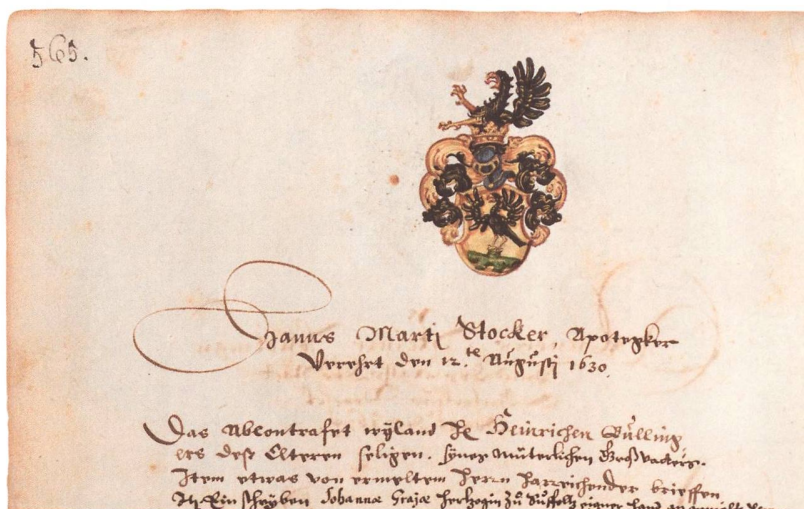 565.
Hanns Martj Stocker, Apotegker
Verehrt den 12.te Augustj 1630.
Das Abcontrafet wÿland Hr Heinrichen Bulling
ers des Elteren seligen, sÿnes muterlichen Großvatters.
Item etwas von ermeltem herrn harreichender brieffen
It. Ein schryben Johannæ Grajæ hertzogin zu Suffolk eigner hand an